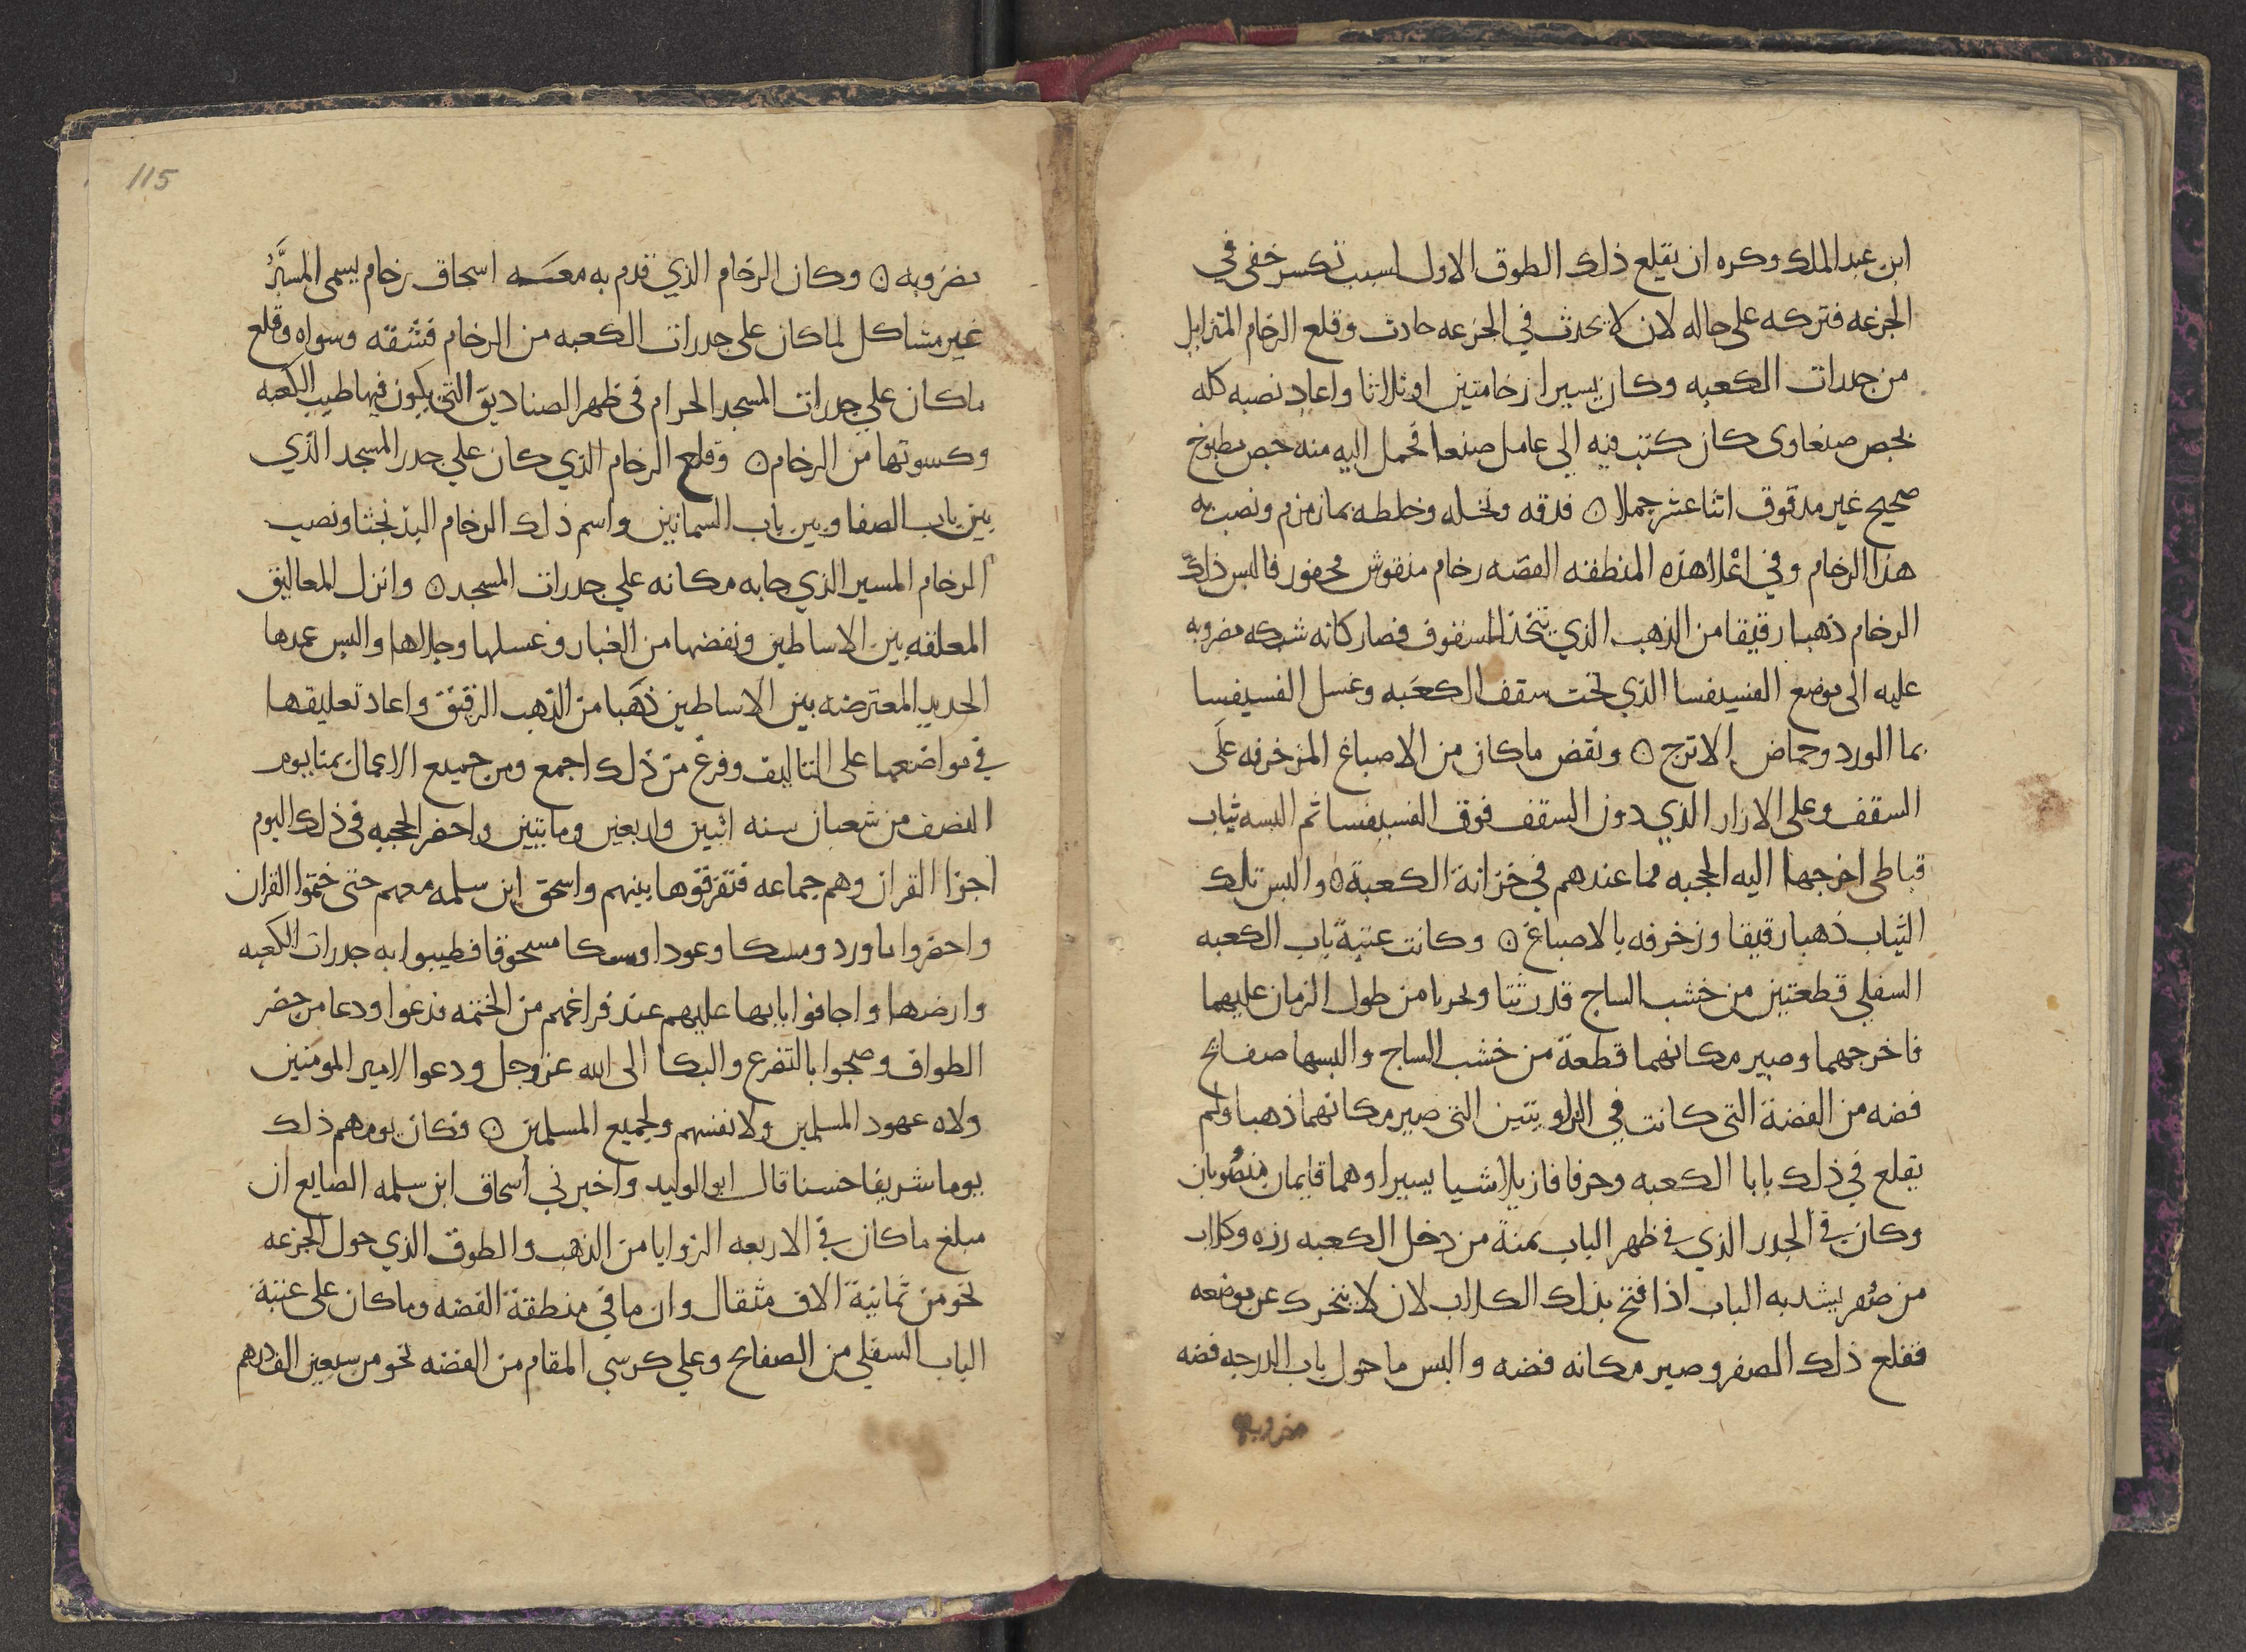 ابن عبد الملك وكره ان يقلع ذلك الطوق الاول لسبب تكسر خفي في
الجزعه فتركه على حاله لان لا يحدث في الجزعه حادث وقلع الرخام المتزايل
من جدرات الكعبه وكان يسيرا رخامتين او ثلاثا واعاد نصبه كله
بجص صنعاوى كان كتب فيه الي عامل صنعا فحمل اليه منه جص مطبوخ
صحيح غير مدقوق اثنا عشر جملا ۞ فدقه ونخله وخلطه بما زمزم ونصب به
هذا الرخام وفي اعلا هذه المنطقه الفضه رخام منقوش محفور فالبس ذلك
الرخام ذهبا رقيقا من الذهب الذي يتخذ للسقوف فصار كانه شركه مضروبه
عليه الى موضع الفسيفسا الذي تحت سقف الكعبه وغسل الفسيفسا
بما الورد وحماض الاترج ۞ ونقض ما كان من الاصباغ المزخرفه على
السقف وعلى الازار الذي دون السقف فوق الفسيفسا ثم البسه ثياب
قباطي اخرجها اليه الحجبه مما عندهم في خزانة الكعبة ۞ والبس تلك
الثياب ذهبا رقيقا وزخرفه بالاصباغ ۞ وكانت عتبة باب الكعبه
السفلي قطعتين من خشب الساج قد رثتا ونخرتا من طول الزمان عليهما
فاخرجهما وصير مكانهما قطعة من خشب الساج والبسها صفائح
فضه من الفضة التى كانت في الزاويتين التى صير مكانهما ذهبا ولم
يقلع في ذلك بابا الكعبه وحرفا فازيلا شيا يسيرا وهما قايمان منصوبان
وكان في الجدر الذي في ظهر الباب يمنة من دخل الكعبه رزه وكلاب
من صفر يشد به الباب اذا فتح بذلك الكلاب لان لا يتحرك عن موضعه
فقلع ذلك الصفر وصير مكانه فضه والبس ما حول باب الدرجه فضه
مضروبه
115
مضروبه ۞ وكان الرخام الذي قدم به معه اسحاق رخام يسمى المسيَّرُ
غير مشاكل لما كان على جدرات الكعبه من الرخام فشقه وسواه وقلع
ما كان علي جدرات المسجد الحرام في ظهر الصناديق التى يكون فيها طيب الكعبه
وكسوتها من الرخام ۞ وقلع الرخام الذي كان علي جدر المسجد الذي
بين باب الصفا وبين باب السمانين واسم ذلك الرخام البذنجثا ونصب
الرخام المسير الذي جا به مكانه علي جدرات المسجد ۞ وانزل المعاليق
المعلقه بين الاساطين ونفضها من الغبار وغسلها وجلاها والبس عمدها
الحديد المعترضه بين الاساطين ذهبا من الذهب الرقيق واعاد تعليقها
في مواضعها على التاليف وفرغ من ذلك اجمع ومن جميع الاعمال بمنا يوم
النصف من شعبان سنه اثنين واربعين ومايتين واحضر الحجبه في ذلك اليوم
اجزا القران وهم جماعه فتفرقوها بينهم واسحق ابن سلمه معهم حتى ختموا القران
واحضروا ماورد ومسكا وعودا وسكا مسحوقا فطيبوا به جدرات الكعبه
وارضها واجافوا بابها عليهم عند فراغهم من الختمه فدعوا ودعا من حضر
الطواف وضجوا بالتضرع والبكا الى الله عز وجل ودعوا لامير المومنين
ولاه عهود المسلمين ولانفسهم ولجميع المسلمين ۞ فكان يومهم ذلك
يوما شريفا حسنا قال ابو الوليد واخبرني اسحاق ابن سلمه الصايغ ان
مبلغ ما كان في الاربعه الزوايا من الذهب والطوق الذي حول الجزعه
نحو من ثمانية الاف مثقال وان ما في منطقة الفضه وما كان على عتبة
الباب السفلي من الصفائح وعلي كرسي المقام من الفضه نحو من سبعين الف درهم